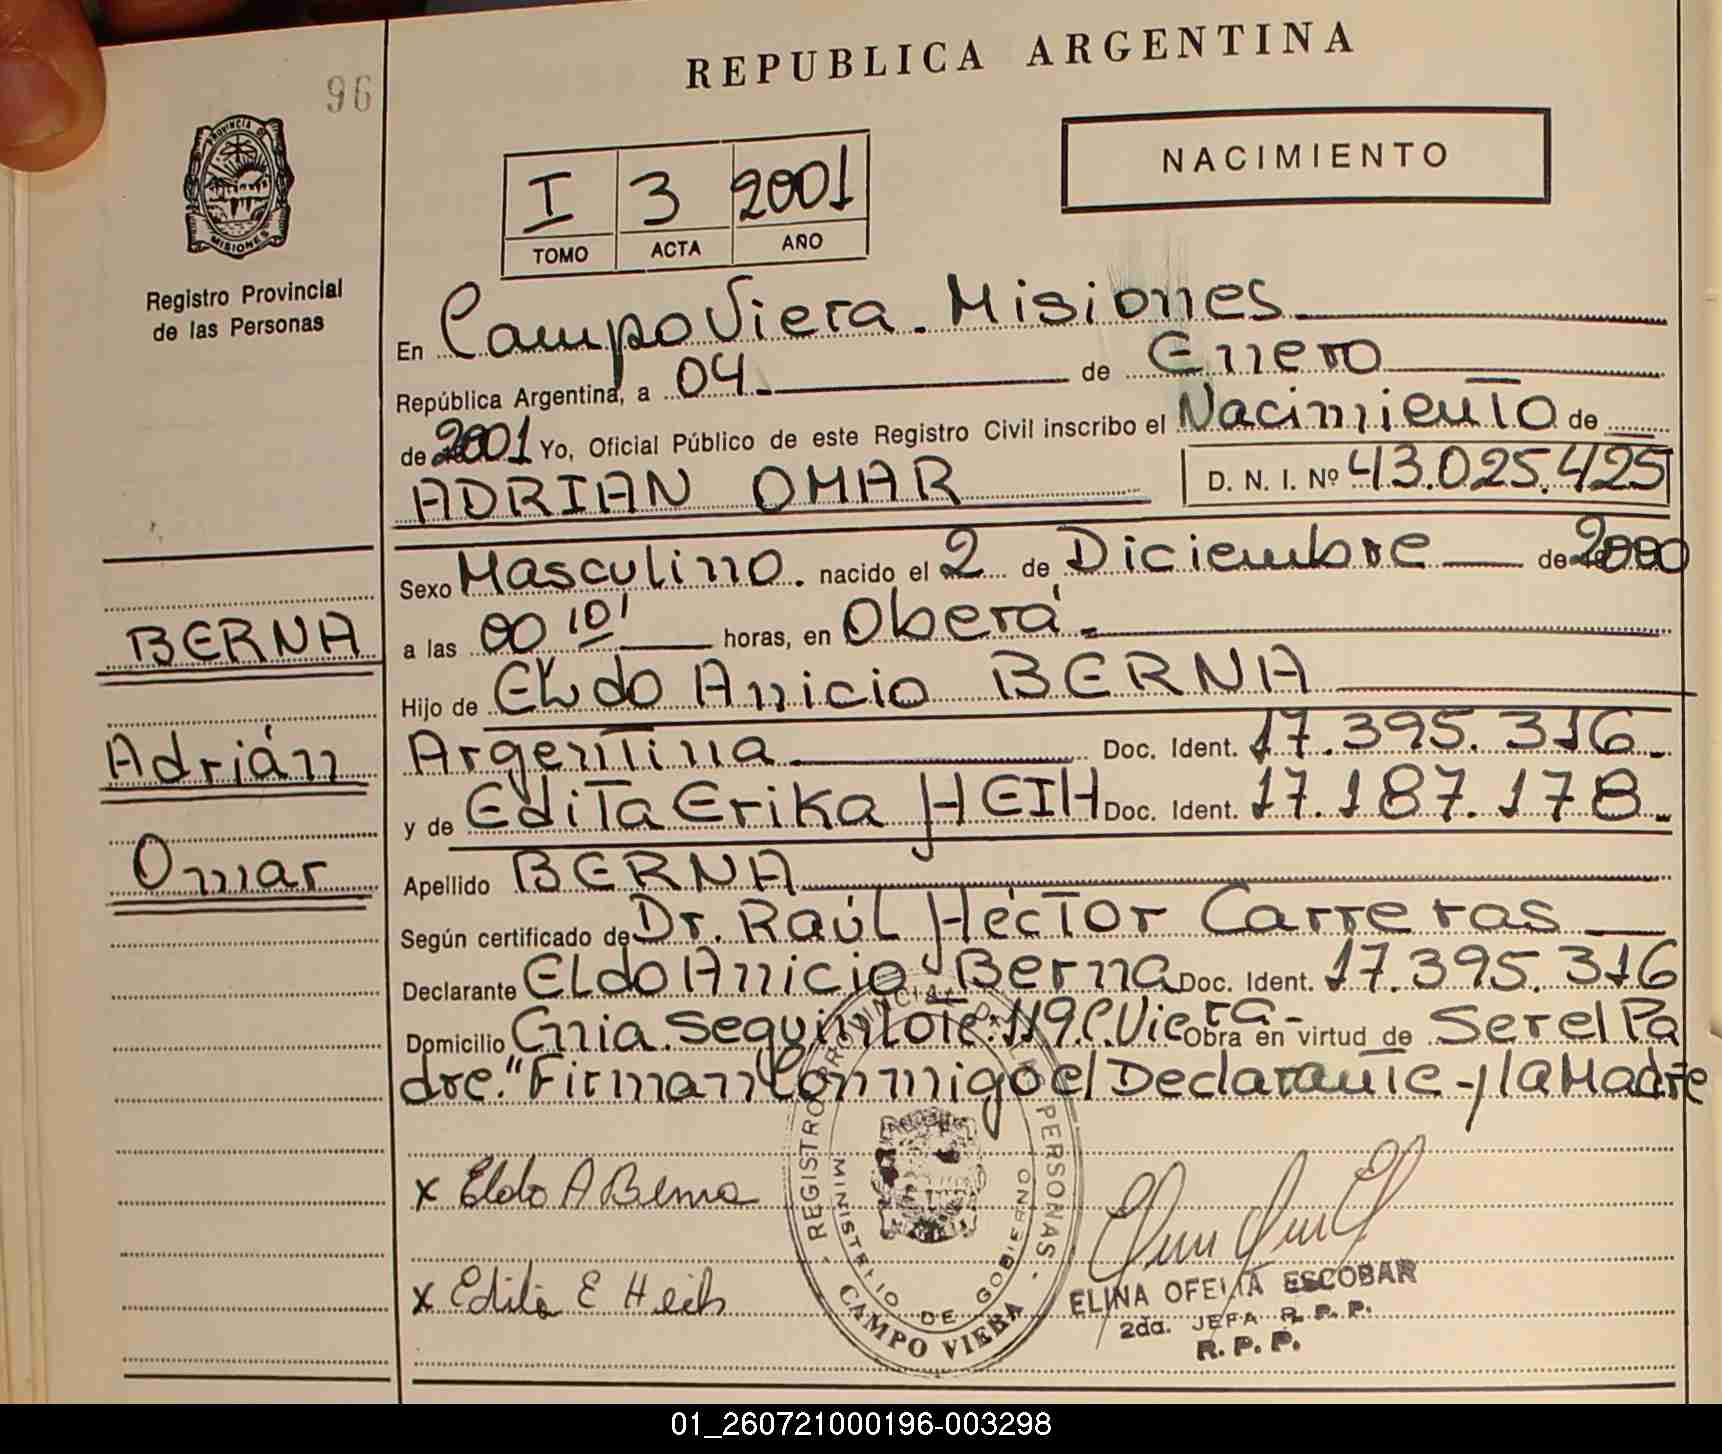 96
REPUBLICA ARGENTINA
PROVINCIA DE
MISIONES
Registro Provincial
de las Personas
I 3 2001
TOMO ACTA AÑO
NACIMIENTO
En Campo Viera. Misiones
República Argentina, a 04 de Enero
de 2001 Yo, Oficial Público de este Registro Civil inscribo el Nacimiento de
ADRIAN OMAR D. N. I. Nº 43.025.425
Sexo Masculino. nacido el 2 de Diciembre de 2000
a las 00 10' horas, en Oberá
Hijo de Eldo Anicio BERNA
Argentina Doc. Ident. 17.395.316
y de Edita Erika HEIH Doc. Ident. 17.187.178
Apellido BERNA
Según certificado de Dr. Raúl Héctor Carreras
Declarante Eldo Anicio Berna Doc. Ident. 17.395.316
Domicilio Cnia. Seguin lote. 119 C. Viera- Obra en virtud de Ser el Pa
dre." Firman Conmigo el Declarante y la Madre
BERNA
Adrián
Omar
x Eldo A Berna
x Edita E Heih
REGISTRO PROVINCIAL DE LAS PERSONAS
MINISTERIO DE GOBIERNO
CAMPO VIERA
ELINA OFELIA ESCOBAR
2da. JEFA R. P. P.
R. P. P.
01_260721000196-003298